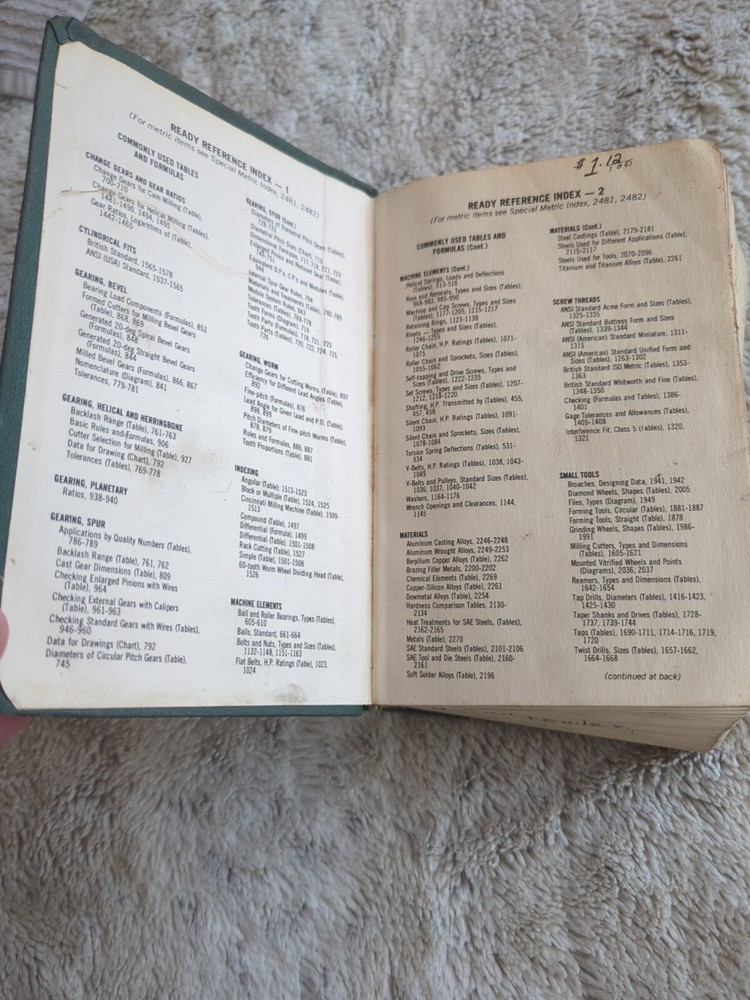 READY REFERENCE INDEX — 1
(For metric items see Special Metric Index, 2481, 2482)
COMMONLY USED TABLES
AND FORMULAS
CHANGE GEARS AND GEAR RATIOS
Change Gears for Cam Milling (Table),
700-710
Change Gears for Helical Milling (Tables),
1481-1490, 1494, 1495
Gear Ratios, Logarithms of (Table),
1442-1465
CYLINDRICAL FITS
British Standard, 1565-1578
ANSI (USA) Standard, 1537-1565
GEARING, BEVEL
Bearing Load Components (Formulas), 853
Formed Cutters for Milling Bevel Gears
(Table), 868, 869
Generated 20-deg Spiral Bevel Gears
(Formulas), 848
Generated 20-deg Straight Bevel Gears
(Formulas), 844
Milled Bevel Gears (Formulas), 866, 867
Nomenclature (Diagram), 841
Tolerances, 779-781
GEARING, HELICAL AND HERRINGBONE
Backlash Range (Table), 761-763
Basic Rules and Formulas, 906
Cutter Selection for Milling (Table), 927
Data for Drawing (Chart), 792
Tolerances (Table), 769-778
GEARING, PLANETARY
Ratios, 938-940
GEARING, SPUR
Applications by Quality Numbers (Tables),
786-789
Backlash Range (Table), 761, 762
Cast Gear Dimensions (Table), 809
Checking Enlarged Pinions with Wires
(Table), 964
Checking External Gears with Calipers
(Table), 961-963
Checking Standard Gears with Wires (Tables),
946-960
Data for Drawings (Chart), 792
Diameters of Circular Pitch Gears (Table),
745
GEARING, SPUR (Cont.)
Diameters of Diametral Pitch Gears (Table),
Equivalent D.P.s, C.P.s and Modules (Table),
944
Internal Spur Gear Rules, 794
Tooth Parts (Diagram), 718
Tooth Parts (Formulas), 718, 721, 723
Tooth Parts (Tables), 720, 722, 724, 725,
726
GEARING, WORM
Change Gears for Cutting Worms (Table), 897
Efficiency for Different Lead Angles (Table),
892
Fine-pitch (Formulas), 876
Lead Angle for Given Lead and P.D. (Table),
898, 899
Pitch Diameters of Fine-pitch Worms (Table),
878, 879
Rules and Formulas, 886, 887
Tooth Proportions (Table), 881
INDEXING
Angular (Table), 1513-1523
Block or Multiple (Table), 1524, 1525
Cincinnati Milling Machine (Table), 1509-
1513
Compound (Table), 1497
Differential (Formula), 1499
Differential (Table), 1501-1508
Rack Cutting (Table), 1527
Simple (Table), 1501-1508
60-tooth Worm Wheel Dividing Head (Table),
1526
MACHINE ELEMENTS
Ball and Roller Bearings, Types (Tables),
605-610
Balls, Standard, 661-664
Bolts and Nuts, Types and Sizes (Tables),
1132-1148, 1151-1163
Flat Belts, H.P. Ratings (Table), 1023,
1024
$1.12
READY REFERENCE INDEX — 2
(For metric items see Special Metric Index, 2481, 2482)
COMMONLY USED TABLES AND
FORMULAS (Cont.)
MACHINE ELEMENTS (Cont.)
Helical Springs, Loads and Deflections
(Tables), 513-516
Keys and Keyseats, Types and Sizes (Tables),
968-983, 985-990
Machine and Cap Screws, Types and Sizes
(Tables), 1177-1205, 1215-1217
Retaining Rings, 1123-1130
Rivets — Types and Sizes (Tables),
1246-1255
Roller Chain, H.P. Ratings (Tables), 1071-
1075
Roller Chain and Sprockets, Sizes (Tables),
1055-1062
Self-tapping and Drive Screws, Types and
Sizes (Tables), 1222-1235
Set Screws, Types and Sizes (Tables), 1207-
1212, 1218-1220
Shafting, H.P. Transmitted by (Tables), 455,
457, 458
Silent Chain, H.P. Ratings (Tables), 1091-
1093
Silent Chain and Sprockets, Sizes (Tables),
1078-1084
Torsion Spring Deflections (Table), 531-
534
V-Belts, H.P. Ratings (Tables), 1038, 1043-
1049
V-Belts and Pulleys, Standard Sizes (Tables),
1036, 1037, 1040-1042
Washers, 1164-1176
Wrench Openings and Clearances, 1144,
1145
MATERIALS
Aluminum Casting Alloys, 2246-2248
Aluminum Wrought Alloys, 2249-2253
Beryllium Copper Alloys (Table), 2262
Brazing Filler Metals, 2200-2202
Chemical Elements (Table), 2269
Copper-Silicon Alloys (Table), 2261
Dowmetal Alloys (Table), 2254
Hardness Comparison Tables, 2130-
2134
Heat Treatments for SAE Steels, (Tables),
2162-2165
Metals (Table), 2270
SAE Standard Steels (Tables), 2101-2106
SAE Tool and Die Steels (Table), 2160-
2161
Soft Solder Alloys (Table), 2196
MATERIALS (Cont.)
Steel Castings (Table), 2179-2181
Steels Used for Different Applications (Table),
2115-2117
Steels Used for Tools, 2070-2096
Titanium and Titanium Alloys (Table), 2261
SCREW THREADS
ANSI Standard Acme Form and Sizes (Tables),
1325-1335
ANSI Standard Buttress Form and Sizes
(Tables), 1339-1344
ANSI (American) Standard Miniature, 1311-
1315
ANSI (American) Standard Unified Form and
Sizes (Tables), 1263-1302
British Standard ISO Metric (Tables), 1353-
1363
British Standard Whitworth and Fine (Tables),
1348-1350
Checking (Formulas and Tables), 1386-
1401
Gage Tolerances and Allowances (Tables),
1405-1408
Interference Fit, Class 5 (Tables), 1320,
1321
SMALL TOOLS
Broaches, Designing Data, 1941, 1942
Diamond Wheels, Shapes (Tables), 2005
Files, Types (Diagram), 1949
Forming Tools, Circular (Tables), 1881-1887
Forming Tools, Straight (Table), 1878
Grinding Wheels, Shapes (Tables), 1986-
1991
Milling Cutters, Types and Dimensions
(Tables), 1605-1621
Mounted Vitrified Wheels and Points
(Diagrams), 2036, 2037
Reamers, Types and Dimensions (Tables),
1642-1654
Tap Drills, Diameters (Tables), 1416-1423,
1425-1430
Taper Shanks and Drives (Tables), 1728-
1737, 1739-1744
Taps (Tables), 1690-1711, 1714-1716, 1719,
1720
Twist Drills, Sizes (Tables), 1657-1662,
1664-1668
(continued at back)